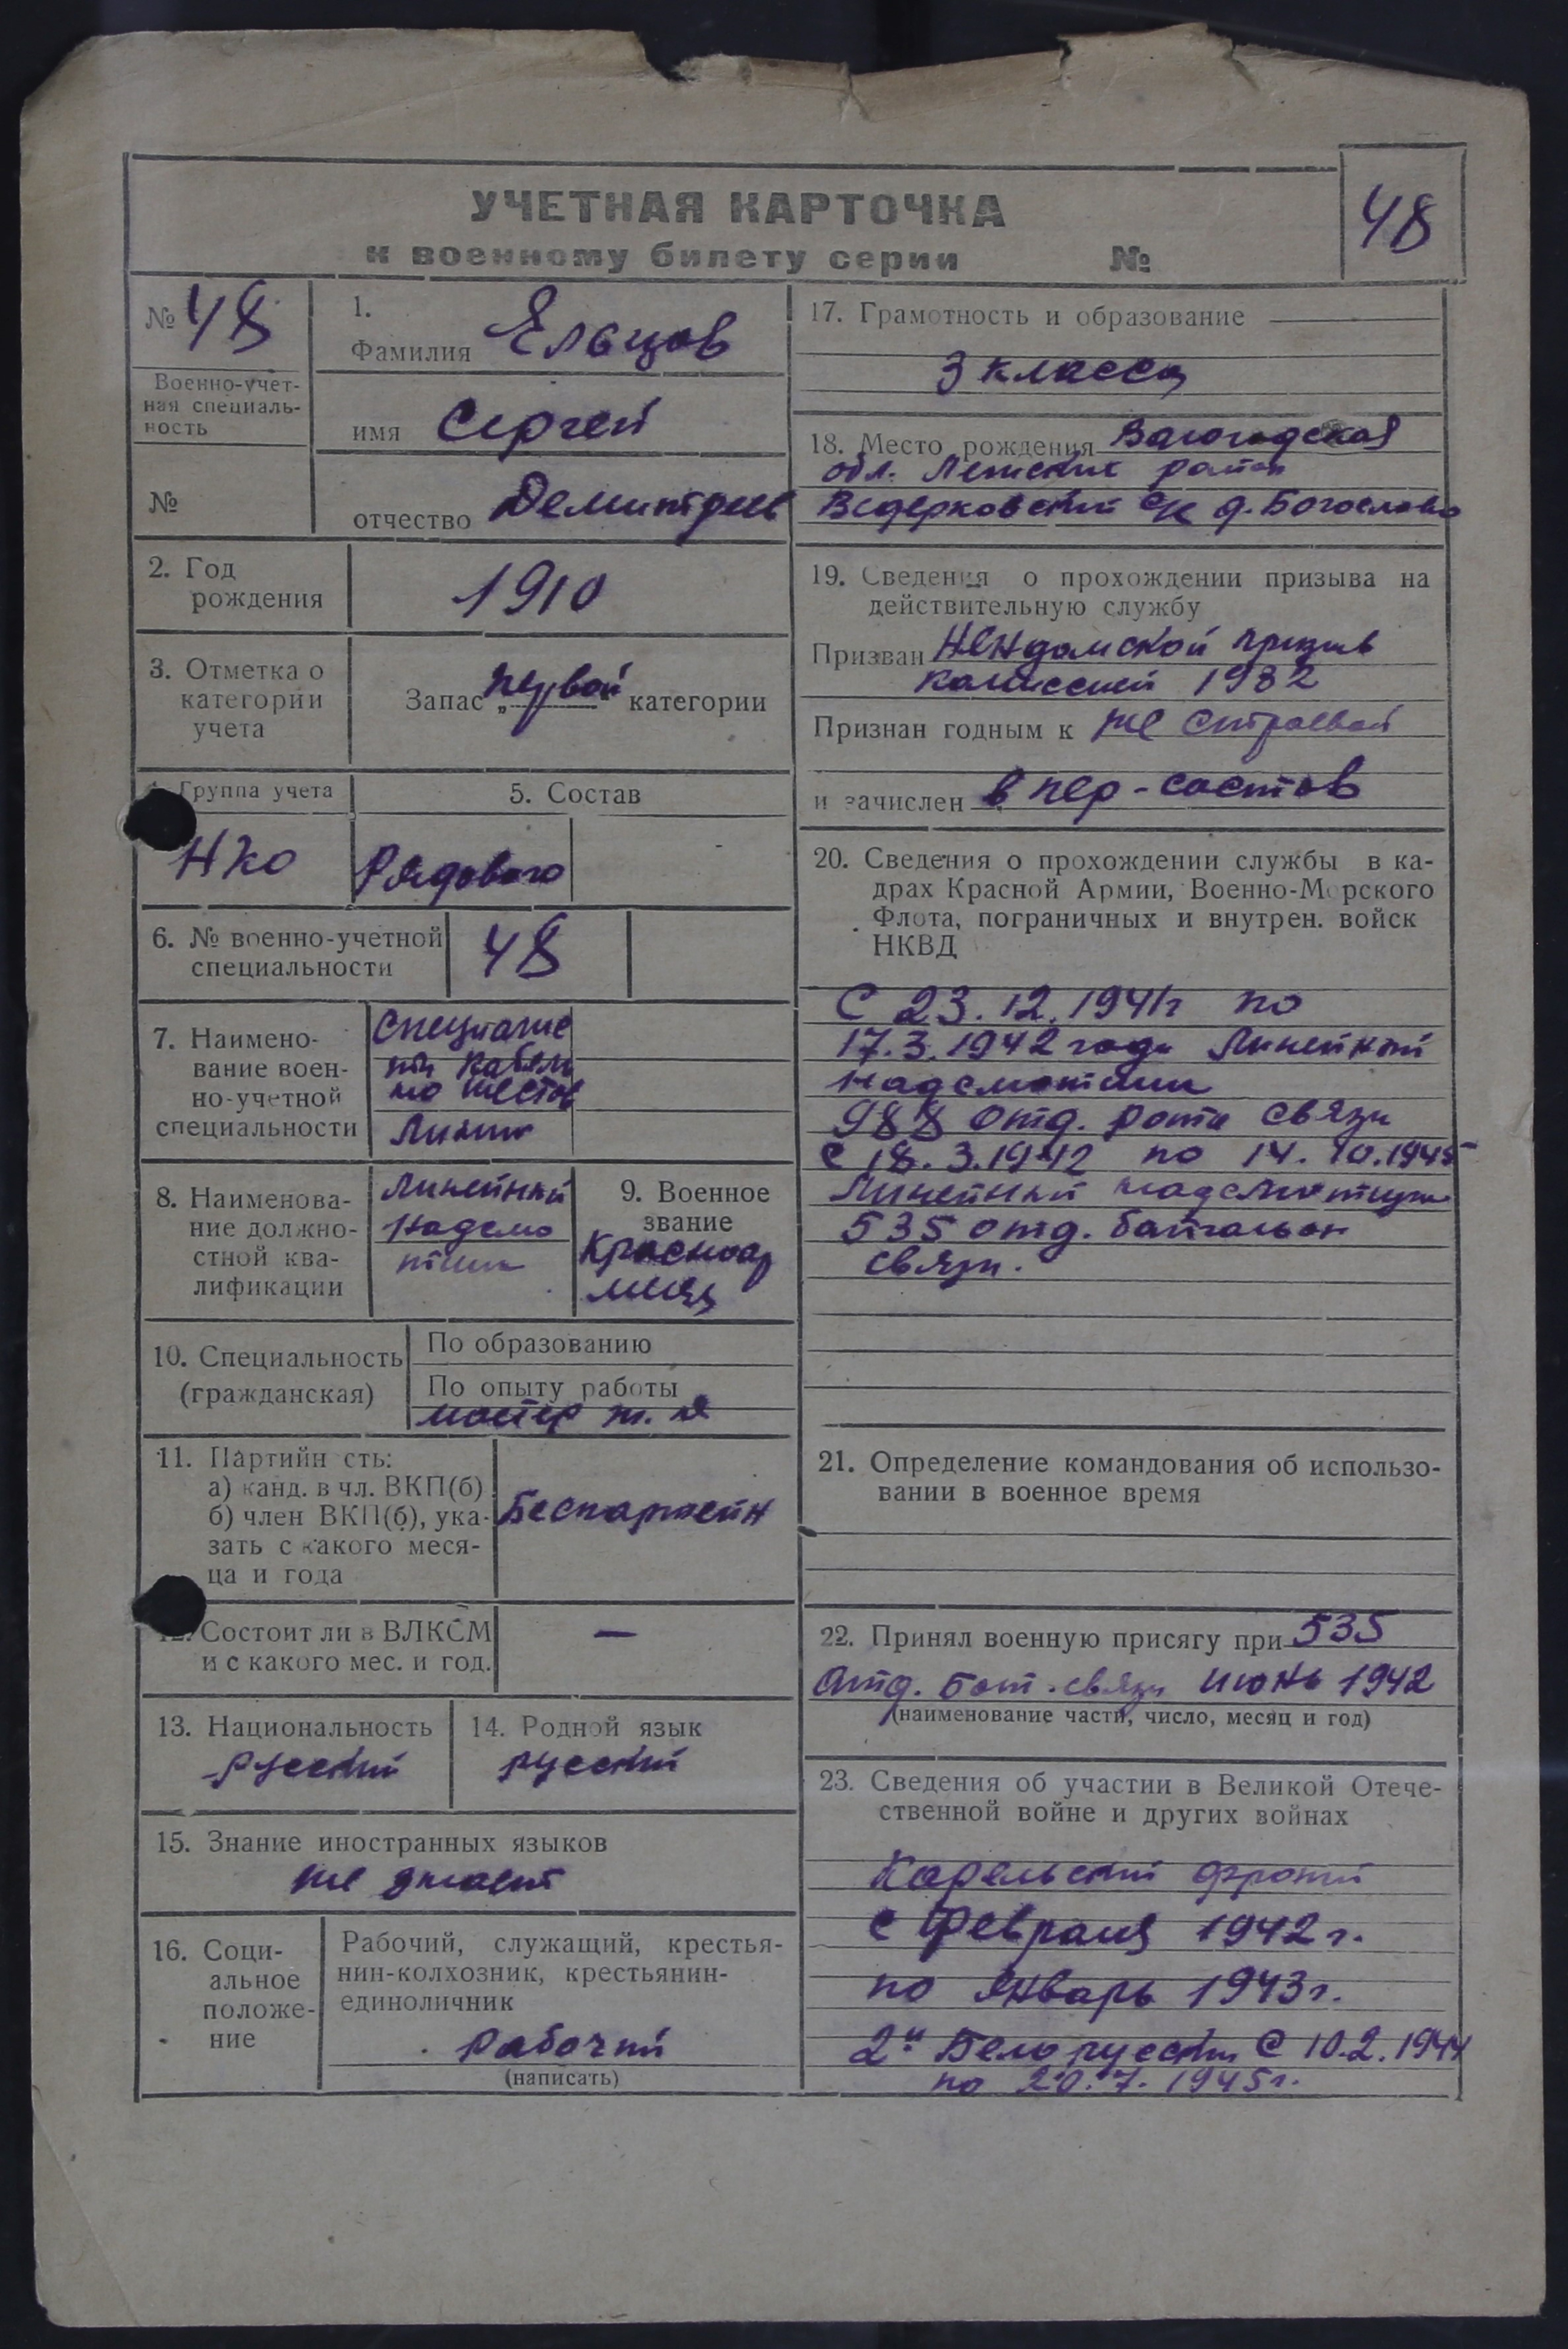 УЧЕТНАЯ КАРТОЧКА
к военному билету серии №
48
№ 48
Военно-учет-
ная специаль-
ность
№
1.
Фамилия Ельцов
имя Сергей
отчество Демитриев
2. Год
рождения
1910
3. Отметка о
категории
учета
Запас „первой“ категории
Группа учета
НКО
5. Состав
Рядового
6. № военно-учетной
специальности
48
7. Наимено-
вание воен-
но-учетной
специальности
Специалис
ты кабель
но шестов
Линии
8. Наименова-
ние должно-
стной ква-
лификации
Линейный
Надсмо
тщик
9. Военное
звание
Красноар
меец
10. Специальность
(гражданская)
По образованию
По опыту работы
мастер
11. Партийн сть:
а) канд. в чл. ВКП(б)
б) член ВКП(б), ука-
зать с какого меся-
ца и года
Беспартейн
12. Состоит ли в ВЛКСМ
и с какого мес. и год.
—
13. Национальность
русский
14. Родной язык
русский
15. Знание иностранных языков
не знает
16. Соци-
альное
положе-
ние
Рабочий, служащий, крестья-
нин-колхозник, крестьянин-
единоличник
рабочий
(написать)
17. Грамотность и образование
3 класса
18. Место рождения Вологодская
обл. Лежский район
Ведерковский с/с д. Богослово
19. Сведения о прохождении призыва на
действительную службу
Призван Няндомской призыв
комиссией 1932
Признан годным к не строевой
и зачислен в пер-состав
20. Сведения о прохождении службы в ка-
драх Красной Армии, Военно-Морского
Флота, пограничных и внутрен. войск
НКВД
С 23.12.1941г по
17.3.1942 года Линейный
надсмотщик
988 отд. рота связи
с 18.3.1942 по 14.10.1945
Линейный надсмотщик
535 отд. батальон
связи.
21. Определение командования об использо-
вании в военное время
22. Принял военную присягу при 535
Отд. бат. связи июнь 1942
(наименование части, число, месяц и год)
23. Сведения об участии в Великой Отече-
ственной войне и других войнах
Карельский фронт
с февраля 1942г.
по январь 1943г.
2й Белорусский с 10.2.1944
по 20.7.1945г.